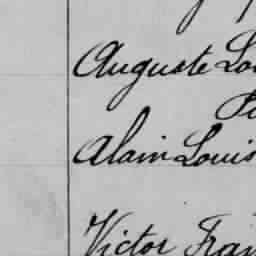 Auguste Lou
Alain Louis
Victor Fran